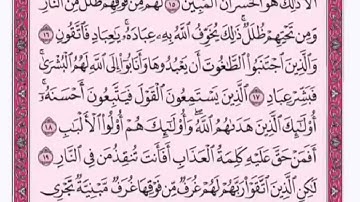 أَلَا ذَٰلِكَ هُوَ ٱلْخُسْرَانُ ٱلْمُبِينُ ١٥ لَهُم مِّن فَوْقِهِمْ ظُلَلٌ مِّنَ ٱلنَّارِ
وَمِن تَحْتِهِمْ ظُلَلٌ ۚ ذَٰلِكَ يُخَوِّفُ ٱللَّهُ بِهِۦ عِبَادَهُۥ ۚ يَٰعِبَادِ فَٱتَّقُونِ ١٦
وَٱلَّذِينَ ٱجْتَنَبُوا۟ ٱلطَّٰغُوتَ أَن يَعْبُدُوهَا وَأَنَابُوٓا۟ إِلَى ٱللَّهِ لَهُمُ ٱلْبُشْرَىٰ ۚ
فَبَشِّرْ عِبَادِ ١٧ ٱلَّذِينَ يَسْتَمِعُونَ ٱلْقَوْلَ فَيَتَّبِعُونَ أَحْسَنَهُۥٓ ۚ
أُو۟لَٰٓئِكَ ٱلَّذِينَ هَدَىٰهُمُ ٱللَّهُ ۖ وَأُو۟لَٰٓئِكَ هُمْ أُو۟لُوا۟ ٱلْأَلْبَٰبِ ١٨
أَفَمَنْ حَقَّ عَلَيْهِ كَلِمَةُ ٱلْعَذَابِ أَفَأَنتَ تُنقِذُ مَن فِى ٱلنَّارِ ١٩
لَٰكِنِ ٱلَّذِينَ ٱتَّقَوْا۟ رَبَّهُمْ لَهُمْ غُرَفٌ مِّن فَوْقِهَا غُرَفٌ مَّبْنِيَّةٌ تَجْرِى